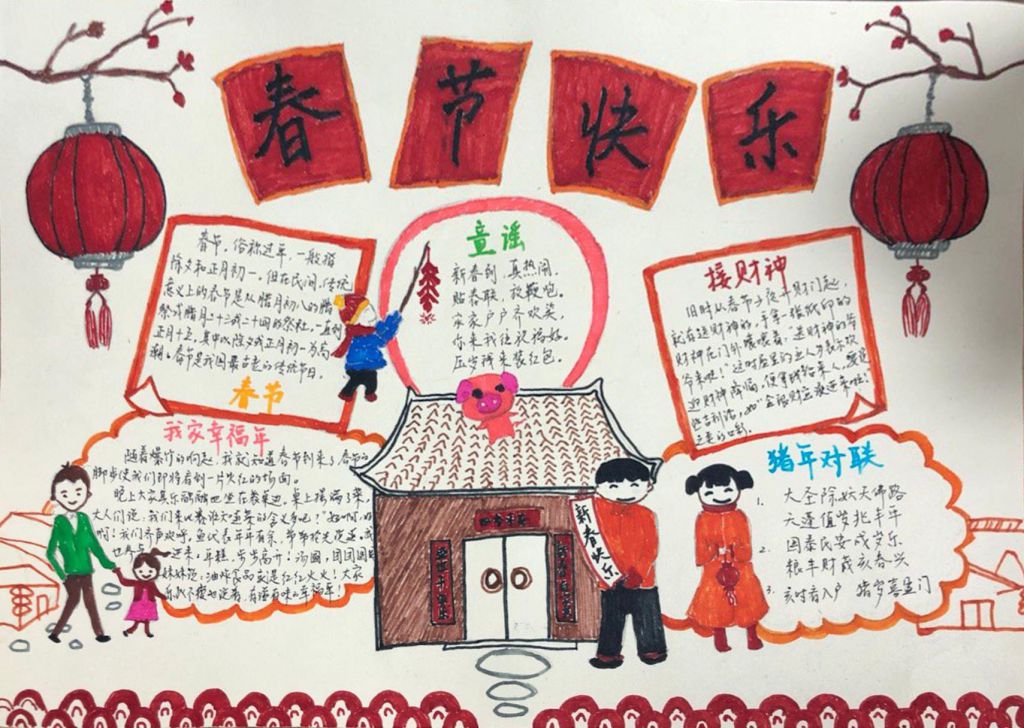 春节快乐
春节，俗称过年，一般指
除夕和正月初一。但在民间，传统
意义上的春节是从腊月初八的腊
祭或腊月二十三或二十四的祭灶，一直到
正月十五，其中以除夕或正月初一为高
潮。春节是我国最古老的传统节日。
春节
童谣
新春到，真热闹，
贴春联，放鞭炮。
家家户户齐欢笑，
你来我往祝福好。
压岁钱来装红包。
接财神
旧时从春节子夜开财门起，
就有送财神的，手拿一张纸印的
财神在门外嚷嚷着，"送财神的爷
爷来啦！"这时屋里的主人为表示欢
迎财神降临，便拿赏钱给来人，
些吉利话，如"金银财宝滚进来啦！"
之类的口彩。
我家幸福年
随着爆竹的响起，我就知道春节到来了，春节的
脚步使我们即将看到一片火红的场面。
晚上大家其乐融融地坐在餐桌边，桌上摆满了菜，
大人们说，我们来比赛
啊！我们齐声欢呼，鱼代表年年有余，
年糕，步步高升！汤圆，团团圆圆
妹妹说，油炸食品就是红红火火！大家
猪年对联
1. 大圣除妖天佛路
天蓬值岁兆丰年
2. 国泰民安戌岁乐
粮丰财茂亥春兴
3. 亥时春入户 猪岁喜盈门
新春快乐